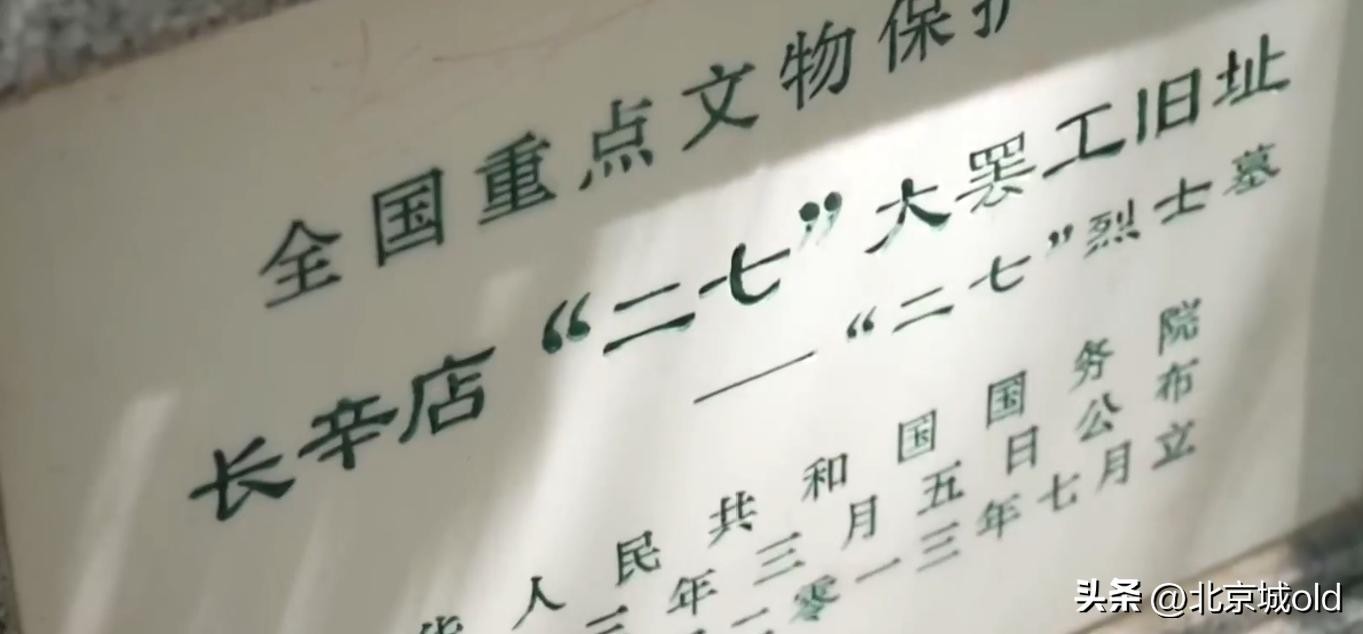 全国重点文物保护
长辛店“二七”大罢工旧址
——“二七”烈士墓
华人民共和国国务院
二年三月五日公布
二零一三年七月立
头条 @北京城old